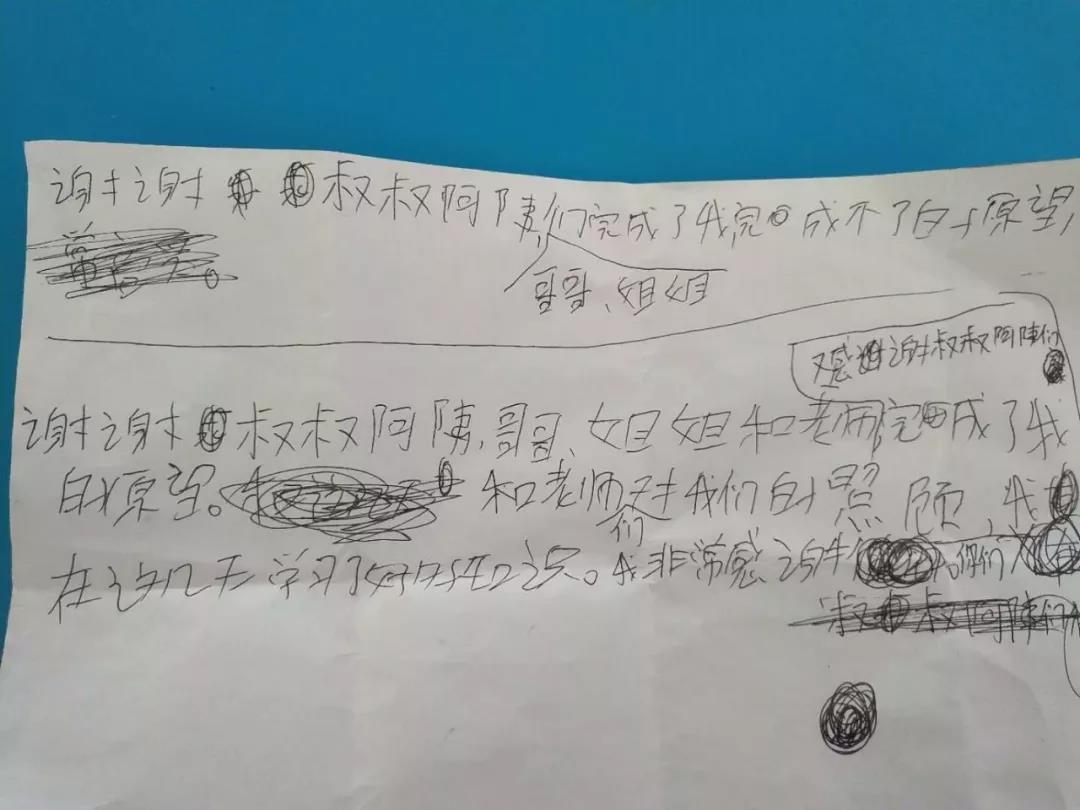 谢谢叔叔阿姨们完成了我完成不了的愿望,
哥哥、姐姐
又感谢叔叔阿姨们
谢谢叔叔阿姨,哥哥、姐姐和老师完成了我
的愿望。和老师们对我们的照顾,我
在这几天学习了好多知识。我非常感谢你们
叔叔阿姨们